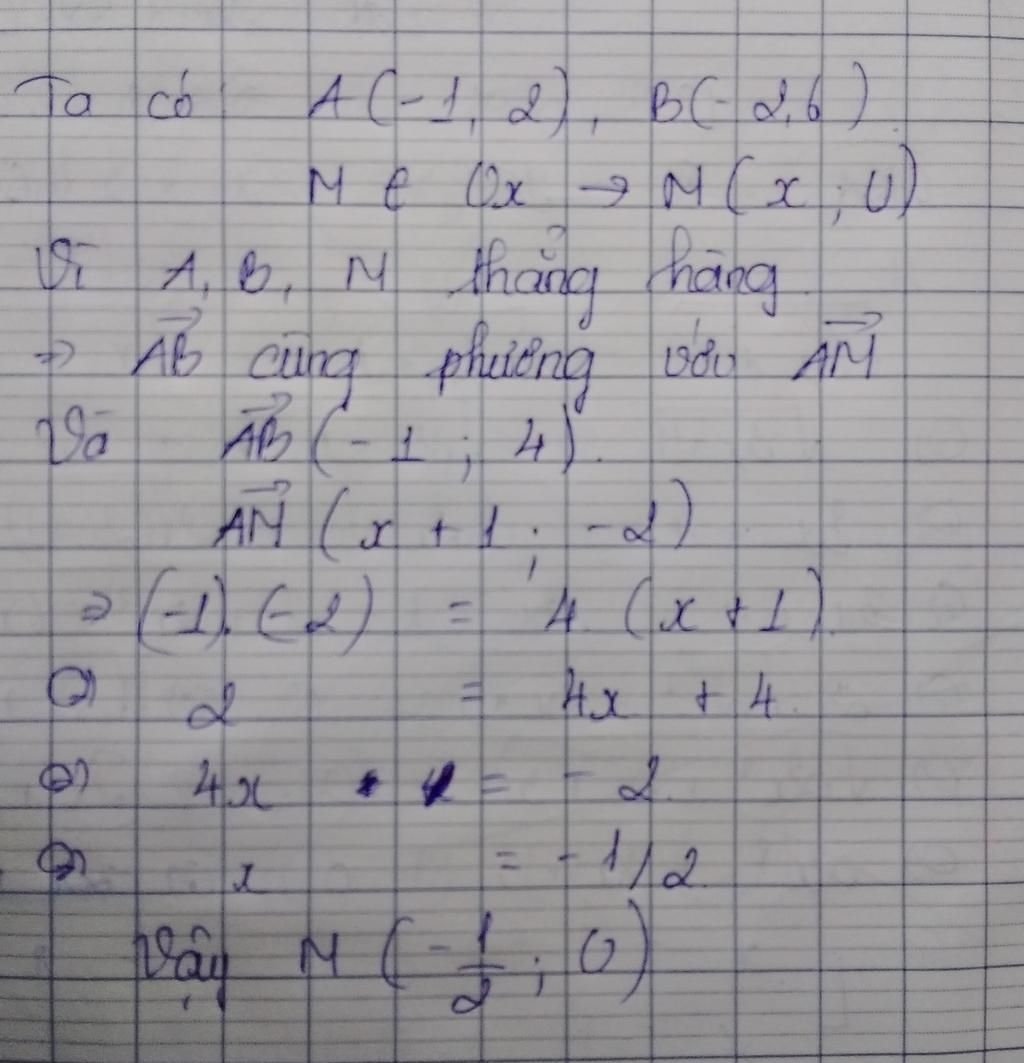 Ta có A(-1, 2), B(-2,6)
M ∈ Ox → M(x ; 0)
Vì A, B, M thẳng hàng.
⇒ \overrightarrow{AB} cùng phương với \overrightarrow{AM}
Và \overrightarrow{AB} (-1 ; 4).
\overrightarrow{AM} (x + 1 ; -2)
⇒ (-1).(-2) = 4.(x+1).
⇔ 2 = 4x + 4
⇔ 4x = -2
⇔ x = -1/2
Vậy M (-\frac{1}{2} ; 0)